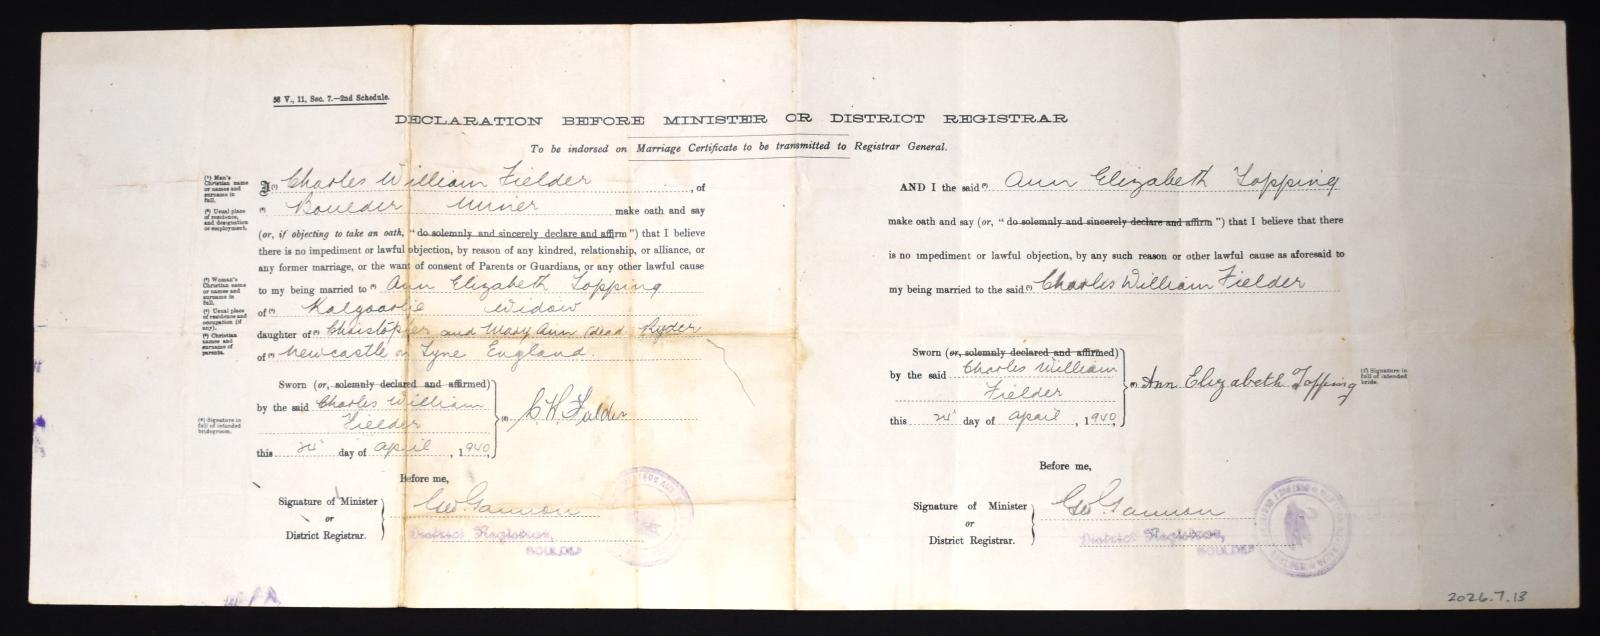 56 V., 11, Sec. 7.—2nd Schedule.
DECLARATION BEFORE MINISTER OR DISTRICT REGISTRAR
To be indorsed on Marriage Certificate to be transmitted to Registrar General.
(¹) Man's Christian name or names and surname in full.
I (¹) Charles William Fielder, of
(²) Usual place of residence, and designation or employment.
(²) Boulder Miner make oath and say
(or, if objecting to take an oath, "do solemnly and sincerely declare and affirm") that I believe
there is no impediment or lawful objection, by reason of any kindred, relationship, or alliance, or
any former marriage, or the want of consent of Parents or Guardians, or any other lawful cause
(³) Woman's Christian name or names and surname in full.
to my being married to (³) Ann Elizabeth Topping
(⁴) Usual place of residence and occupation (if any).
of (⁴) Kalgoorlie Widow
(⁵) Christian names and surname of parents.
daughter of (⁵) Christopher and Mary Ann (dead Ryder
of (⁴) Newcastle on Tyne England.
Sworn (or, solemnly declared and affirmed)
by the said Charles William
Fielder
this day of April, 1940,
(⁶) Signature in full of intended bridegroom.
(⁶) C. W. Fielder
Before me,
Signature of Minister
or
District Registrar.
Geo. Gannon
District Registrar,
BOULDER
AND I the said (³) Ann Elizabeth Topping
make oath and say (or, "do solemnly and sincerely declare and affirm") that I believe that there
is no impediment or lawful objection, by any such reason or other lawful cause as aforesaid to
my being married to the said (¹) Charles William Fielder
Sworn (or, solemnly declared and affirmed)
by the said Charles William
Fielder
this day of April, 1940,
(⁷) Ann. Elizabeth Topping
(⁷) Signature in full of intended bride.
Before me,
Signature of Minister
or
District Registrar.
Geo. Gannon
District Registrar,
BOULDER
2026.7.13